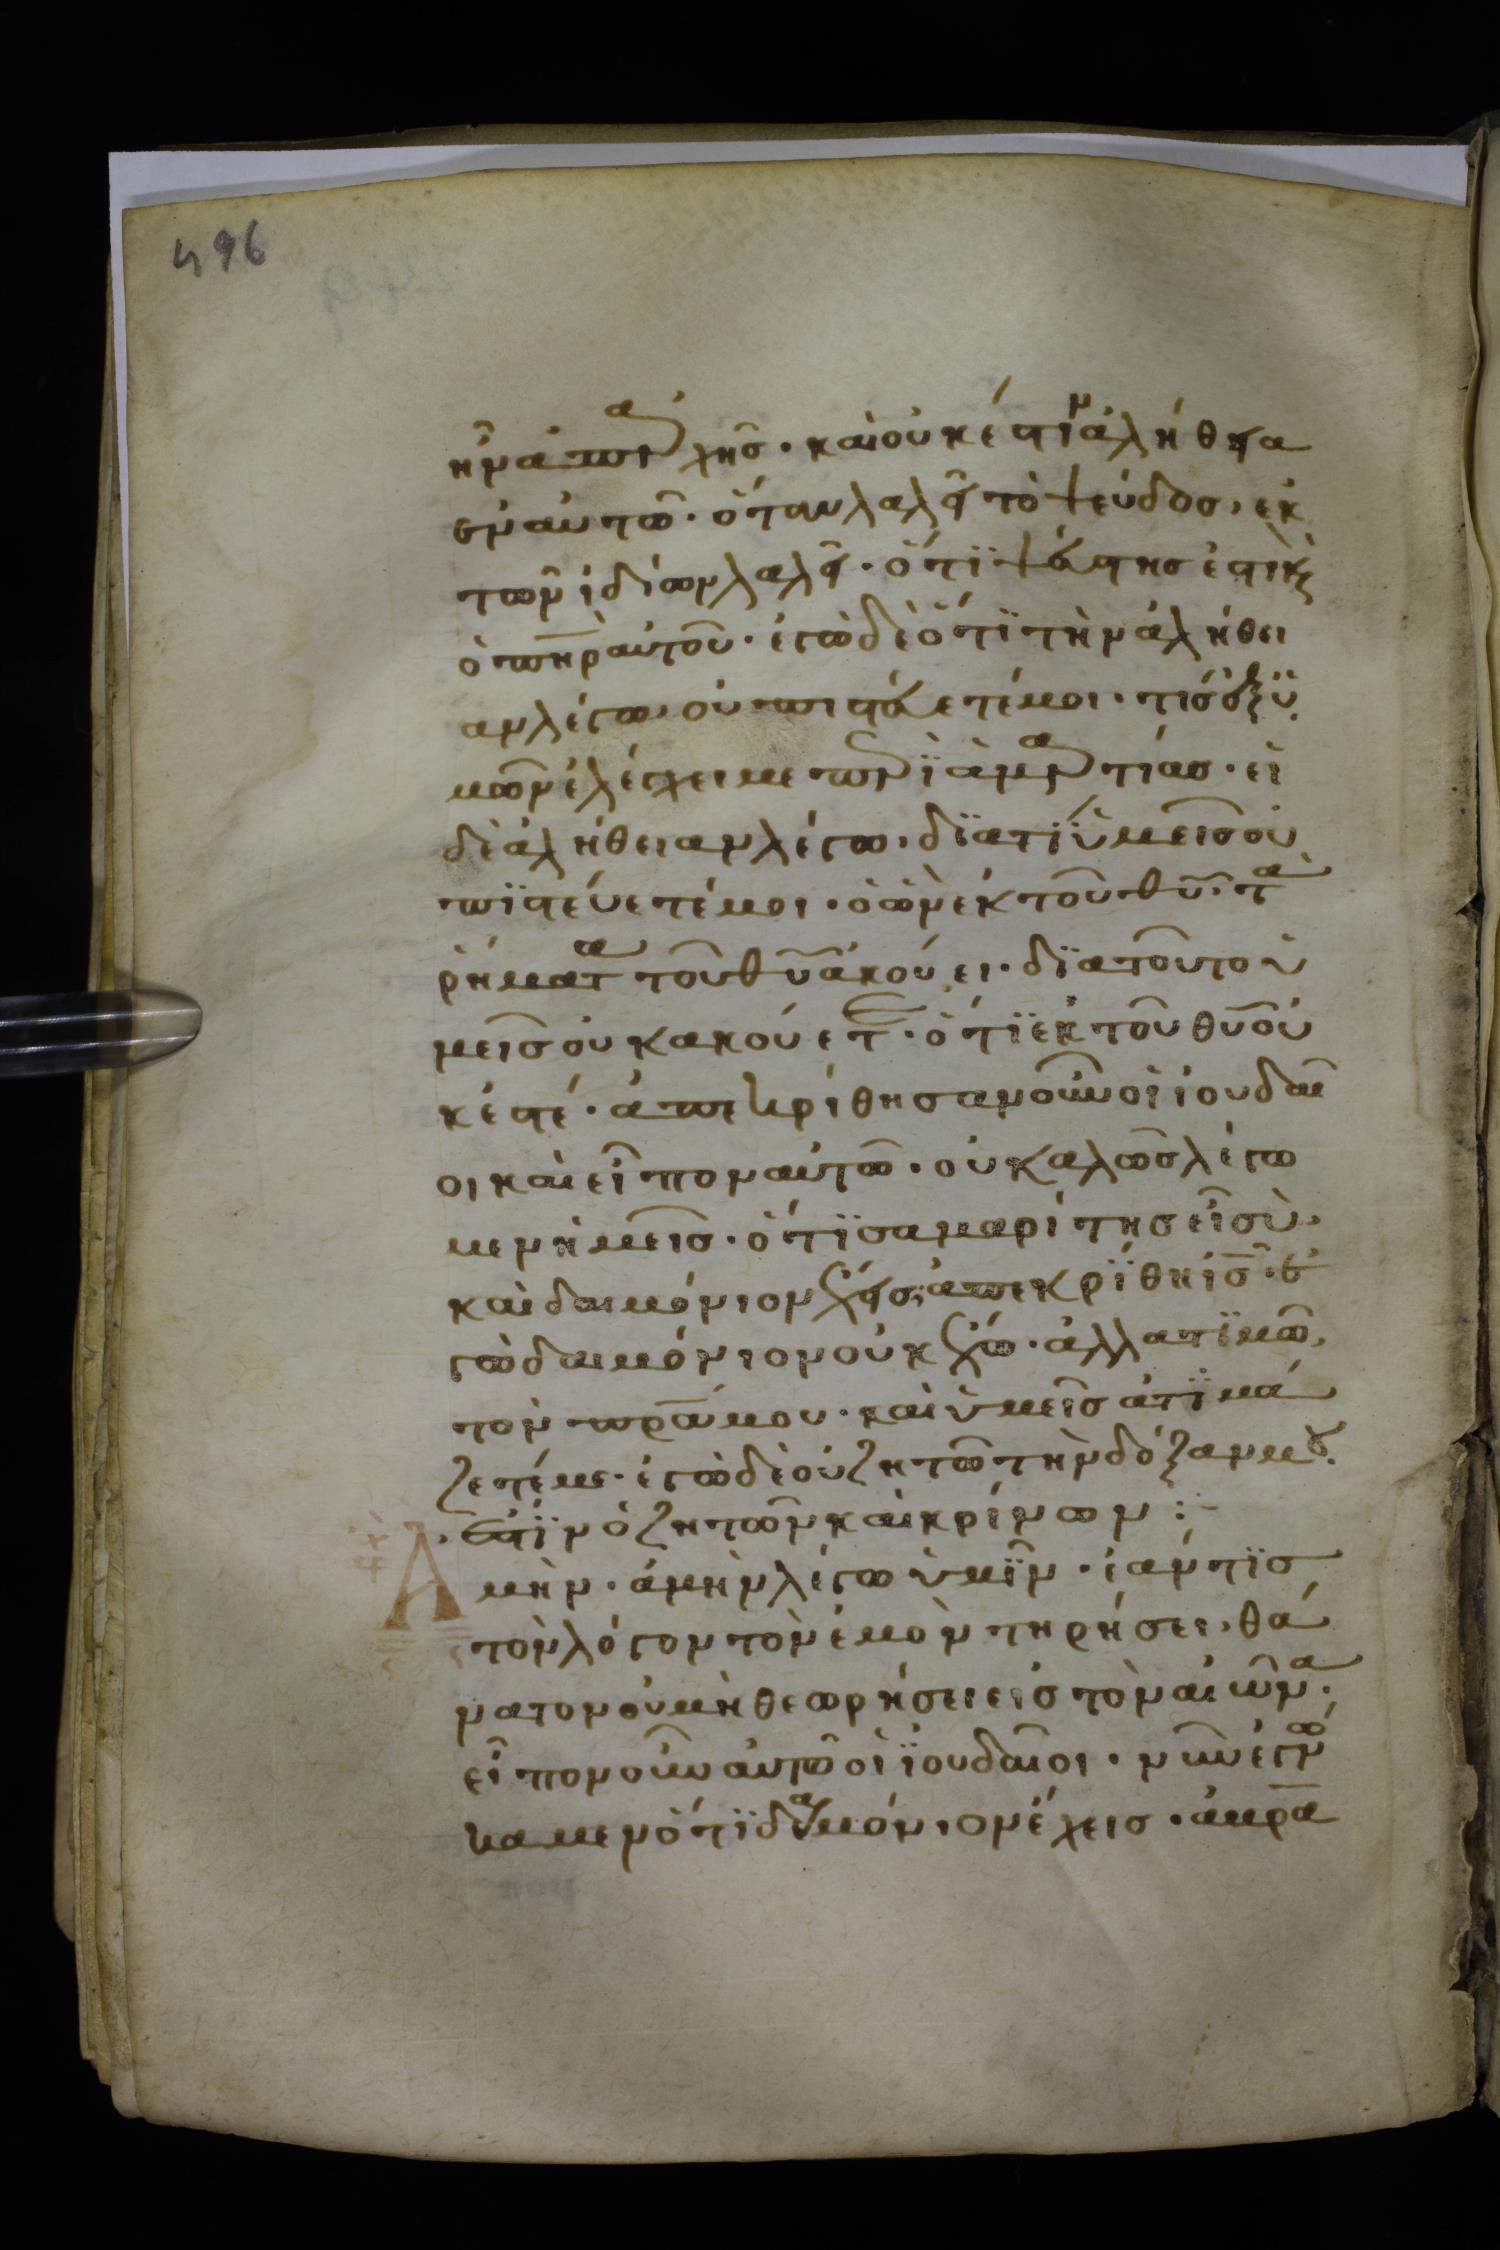 496
ἦν ἀπαρχῆς · καὶ οὐκ ἔστιν ἀλήθεια
ἐν αὐτῶ · ὅταν λαλεῖ τὸ ψεύδος, ἐκ
τῶν ἰδίων λαλεῖ · ὅτϊ ψεύστης ἐστὶ κς
ὁ πηρ αὐτοῦ · ἐγὼ δὲ ὅτϊ τὴν ἀλήθει
αν λέγω, οὐ πιστεύετέ μοι · τίς ἐξ ὑ
μῶν ἐλέγχει με περὶ ἁμαρτίας · εἰ
δὲ ἀλήθειαν λέγω, δϊατί ὑμεῖς οὐ
πϊστεύετέ μοι · ὁ ὢν ἐκ τοῦ θυ · τὰ
ῥήματα τοῦ θυ ἀκούει · δϊατοῦτο ὑ
μεῖς οὐκ ἀκούετε · ὅτϊ ἐκ τοῦ θυ οὐ
κ ἐστέ · ἀπεκρίθησαν οὖν οἱ ἰουδαῖ
οι καὶ εἶπον αὐτῶ · οὐ καλῶς λέγω
μεν ἡμεῖς · ὅτϊ σαμαρίτης εἶ σὺ,
καὶ δαιμόνιον ἔχεις; ἀπεκρϊθη ις · ἐ
γὼ δαιμόνιον οὐκ ἔχω · ἀλλα τϊμῶ,
τὸν πρα μου · καὶ ὑμεῖς ἀτϊμά
ζετέ με · ἐγὼ δὲ οὐ ζητῶ τὴν δόξαν μου.
ἔστϊν ὁ ζητῶν καὶ κρίνων :
Ἀμὴν · ἀμὴν λέγω ὑμῖν · ἐάν τϊς
τὸν λόγον τὸν ἐμὸν τηρήσει, θά
νατον οὐ μὴ θεωρήσει εἰς τὸν αἰῶνα ·
εἶπον οὖν αὐτῶ οἱ ϊουδαῖοι · νῦν ἐγνώ
καμεν ὅτϊ δαιμόνιον ἔχεις · ἀβρα